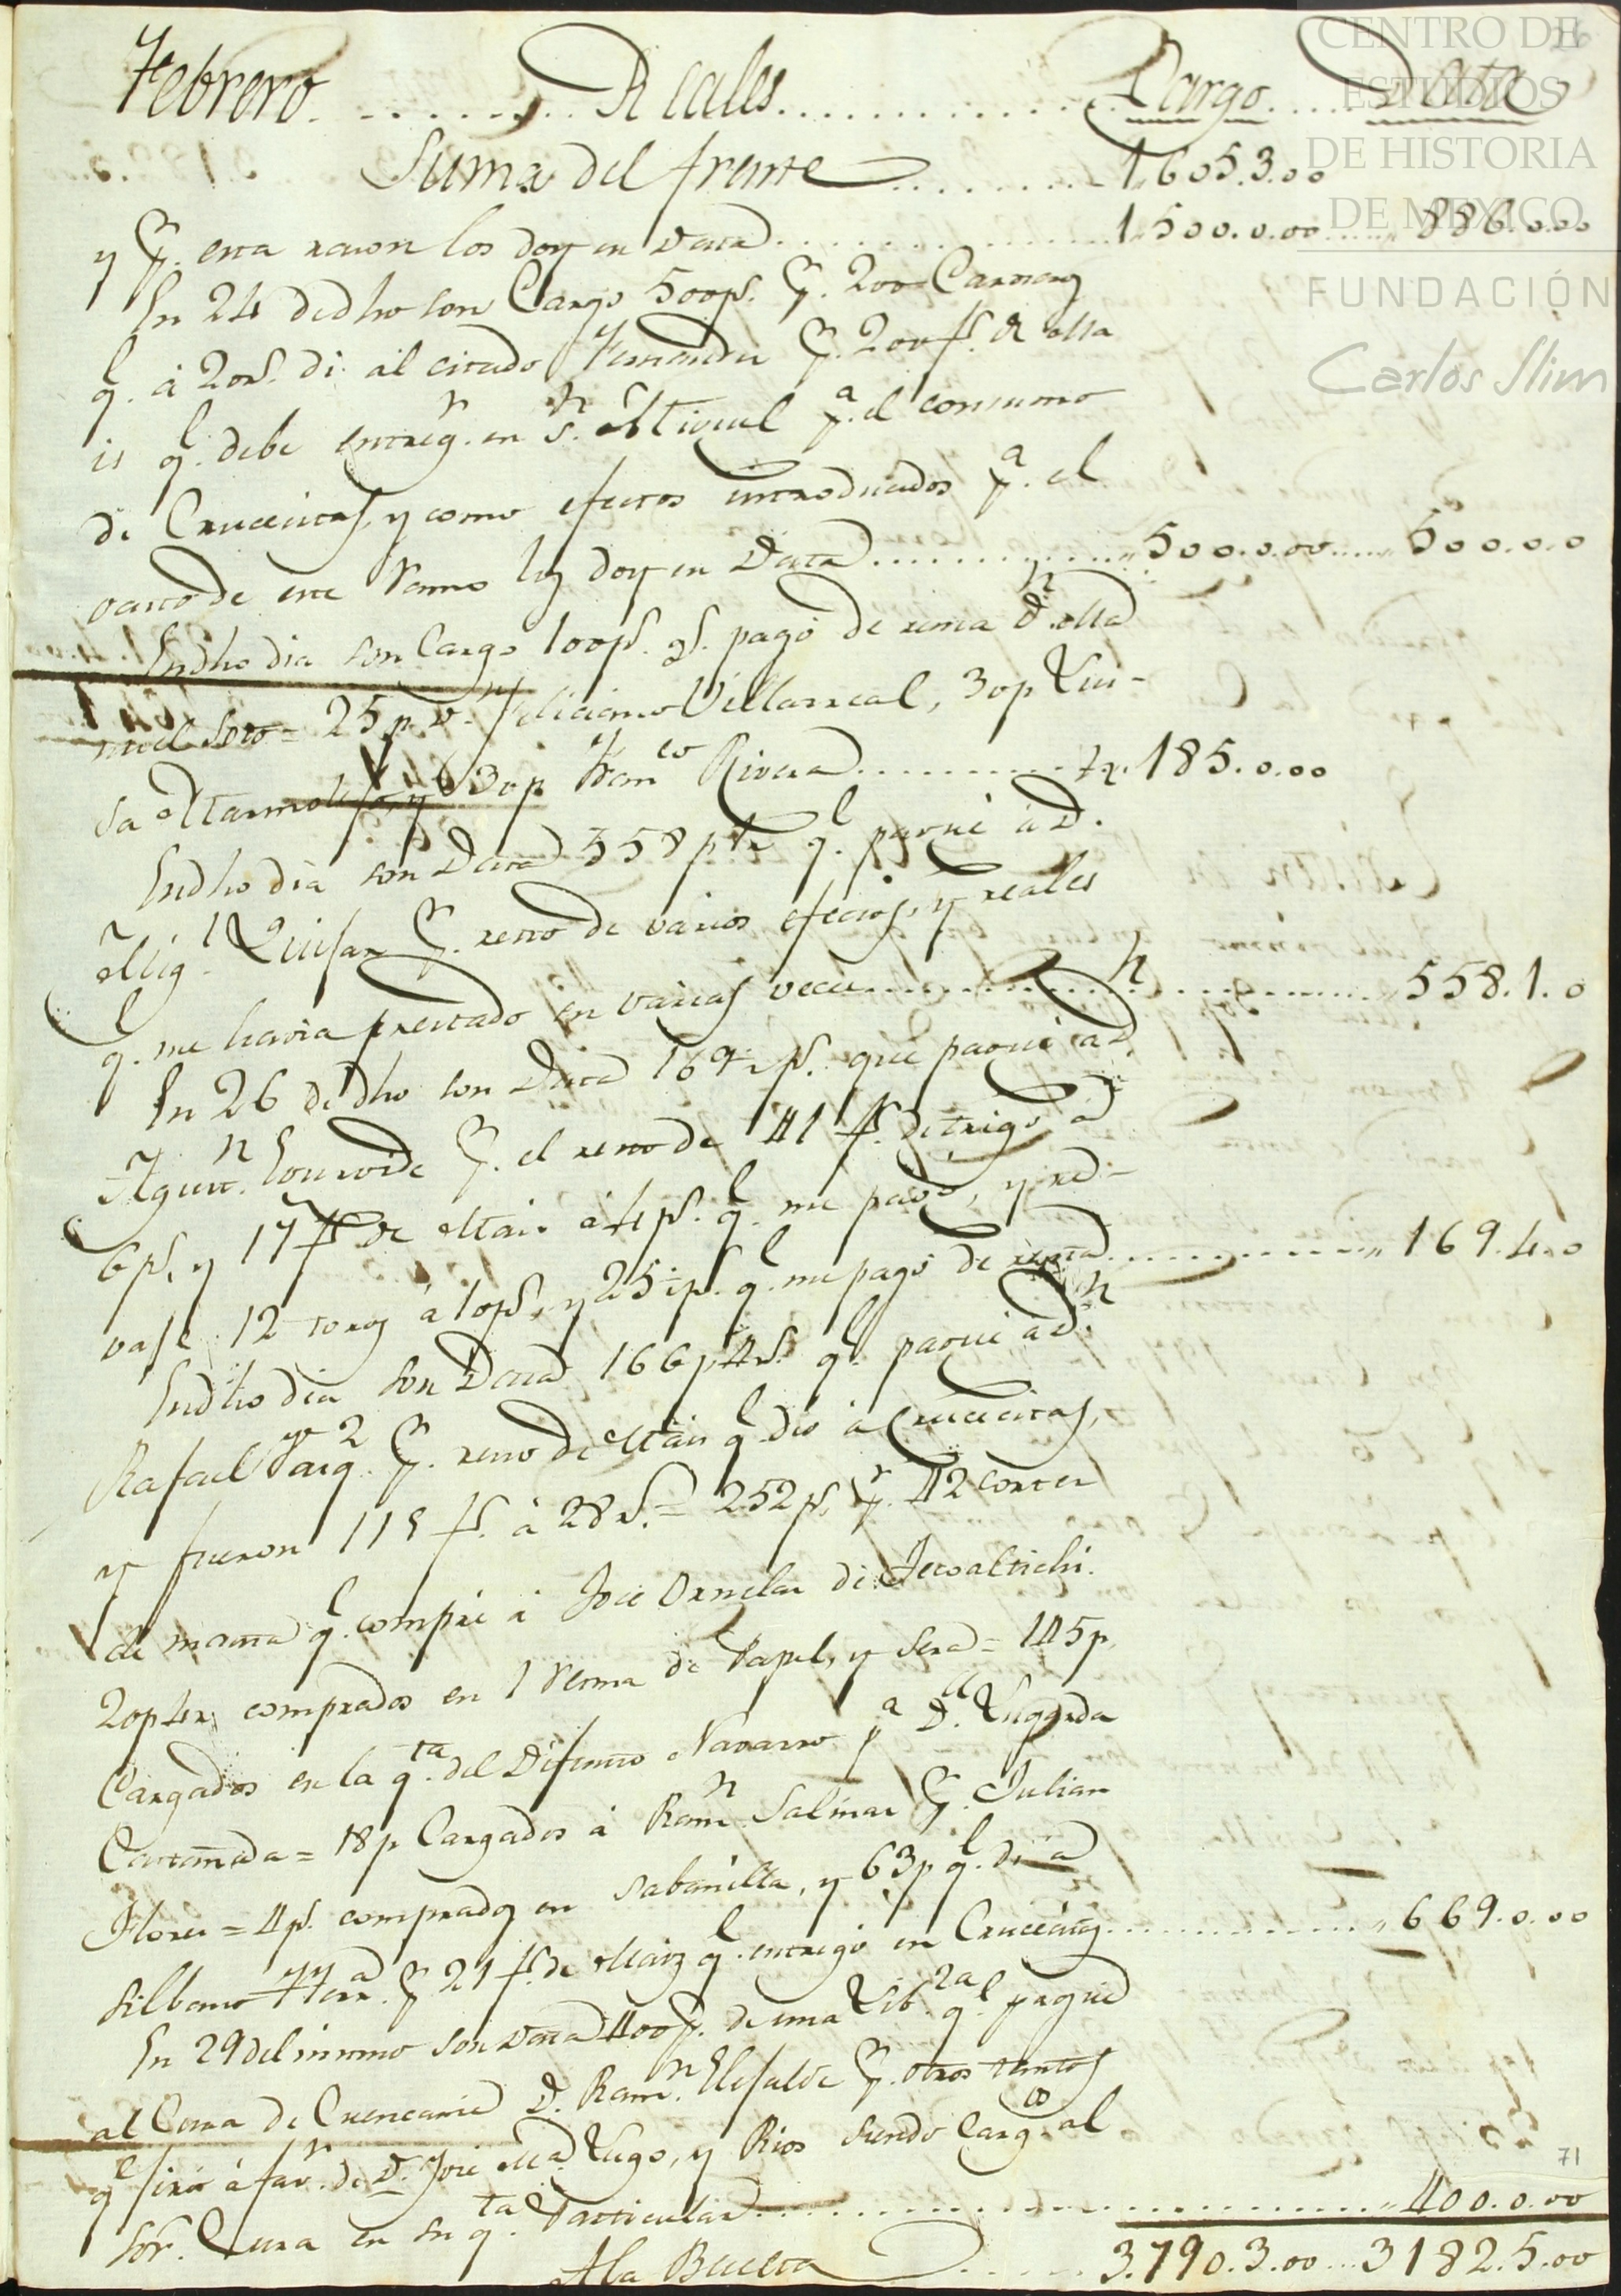 CENTRO DE
ESTUDIOS
DE HISTORIA
DE MEXICO
FUNDACIÓN
Carlos Slim
Febrero. Reales Cargo Data
Suma del frente 1,605.3.00
y pr. esta rason los doy en Data 1,500.0.00 886.0.00
En 24 de dho son Cargo 500ps. pr. 200 Carneros
q. á 20rs. di al citado Fernandez pr. 200 fs. de Ma
is q. debe entregr. en Sn. Miguel pa. el consumo
de Crucecitas, y como efectos introducidos pa. el
gasto de este Ramo los doy en Data 500.0.00 500.0.0
En dho dia son Cargo 100ps. qs. pagó de renta Dn. Ma
nuel Soto = 25p. Dn. Feliciano Villarreal, 30p Lui-
sa Marmolejo, y 30p Franco Rivera 185.0.00
En dho dia son Data 558p1r ql. pagué á D.
Migl. Quijar pr. resto de varios efectos, y reales
ql. me havia prestado en varias veces 558.1.0
En 26 de dho son Data 169 ps. que pagué a Dn.
Agustn. pr. el resto de 41 fs. de trigo á
6ps, y 17 fs de Mais á 4ps. ql. me pasó, y re-
vasé 12 toros á 10ps, y 25 ps. ql. me pagó de renta 169.4.0
En dho dia son Data 166p4rs. ql. pagué a Dn.
Rafael Varqz. pr. resto de Mais ql. dió á Crucecitas,
y fueron 118 fs. á 28 rs. = 252ps, pr. 42 cortes
de manta ql. compré á Jose Ornelas de Teocaltichi.
20p4rs comprados en 1 Resma de Papel, y Seda = 145p.
Cargados en la qta. del Difunto Navarro pa Da. Lugarda
Castañeda = 18p Cargados á Ramn. Salinas pr. Julian
Flores = 4ps. comprados en Sabanilla, y 63p ql. di á
Silbano Herra. pr 21 fs. de Maiz ql. entregó en Crucecitas 669.0.00
En 29 del mismo son Data 400ps. de una Libza. ql. pagué
al Cura de Cuencamé D. Ramn. Elisalde pr. otros tantos
ql. jiró á favr. de D. José Ma. Lugo, y Rios siendo Cargo al
Sor. Cura en su qta. Particular 400.0.00
A la Buelta 3.790.3.00 3182.5.00
71